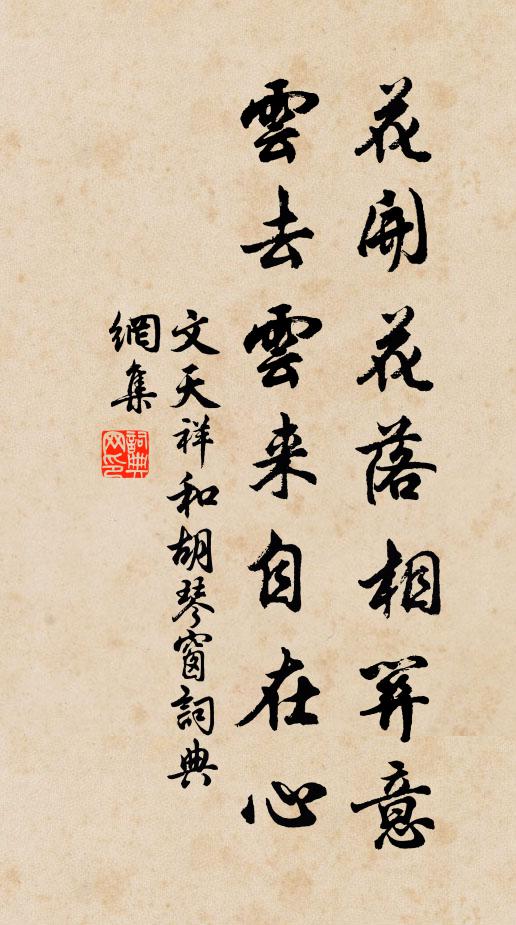 花開花落相關意
雲去雲来自在心
文天祥和胡琴窗詞典
網集
詞典
网印